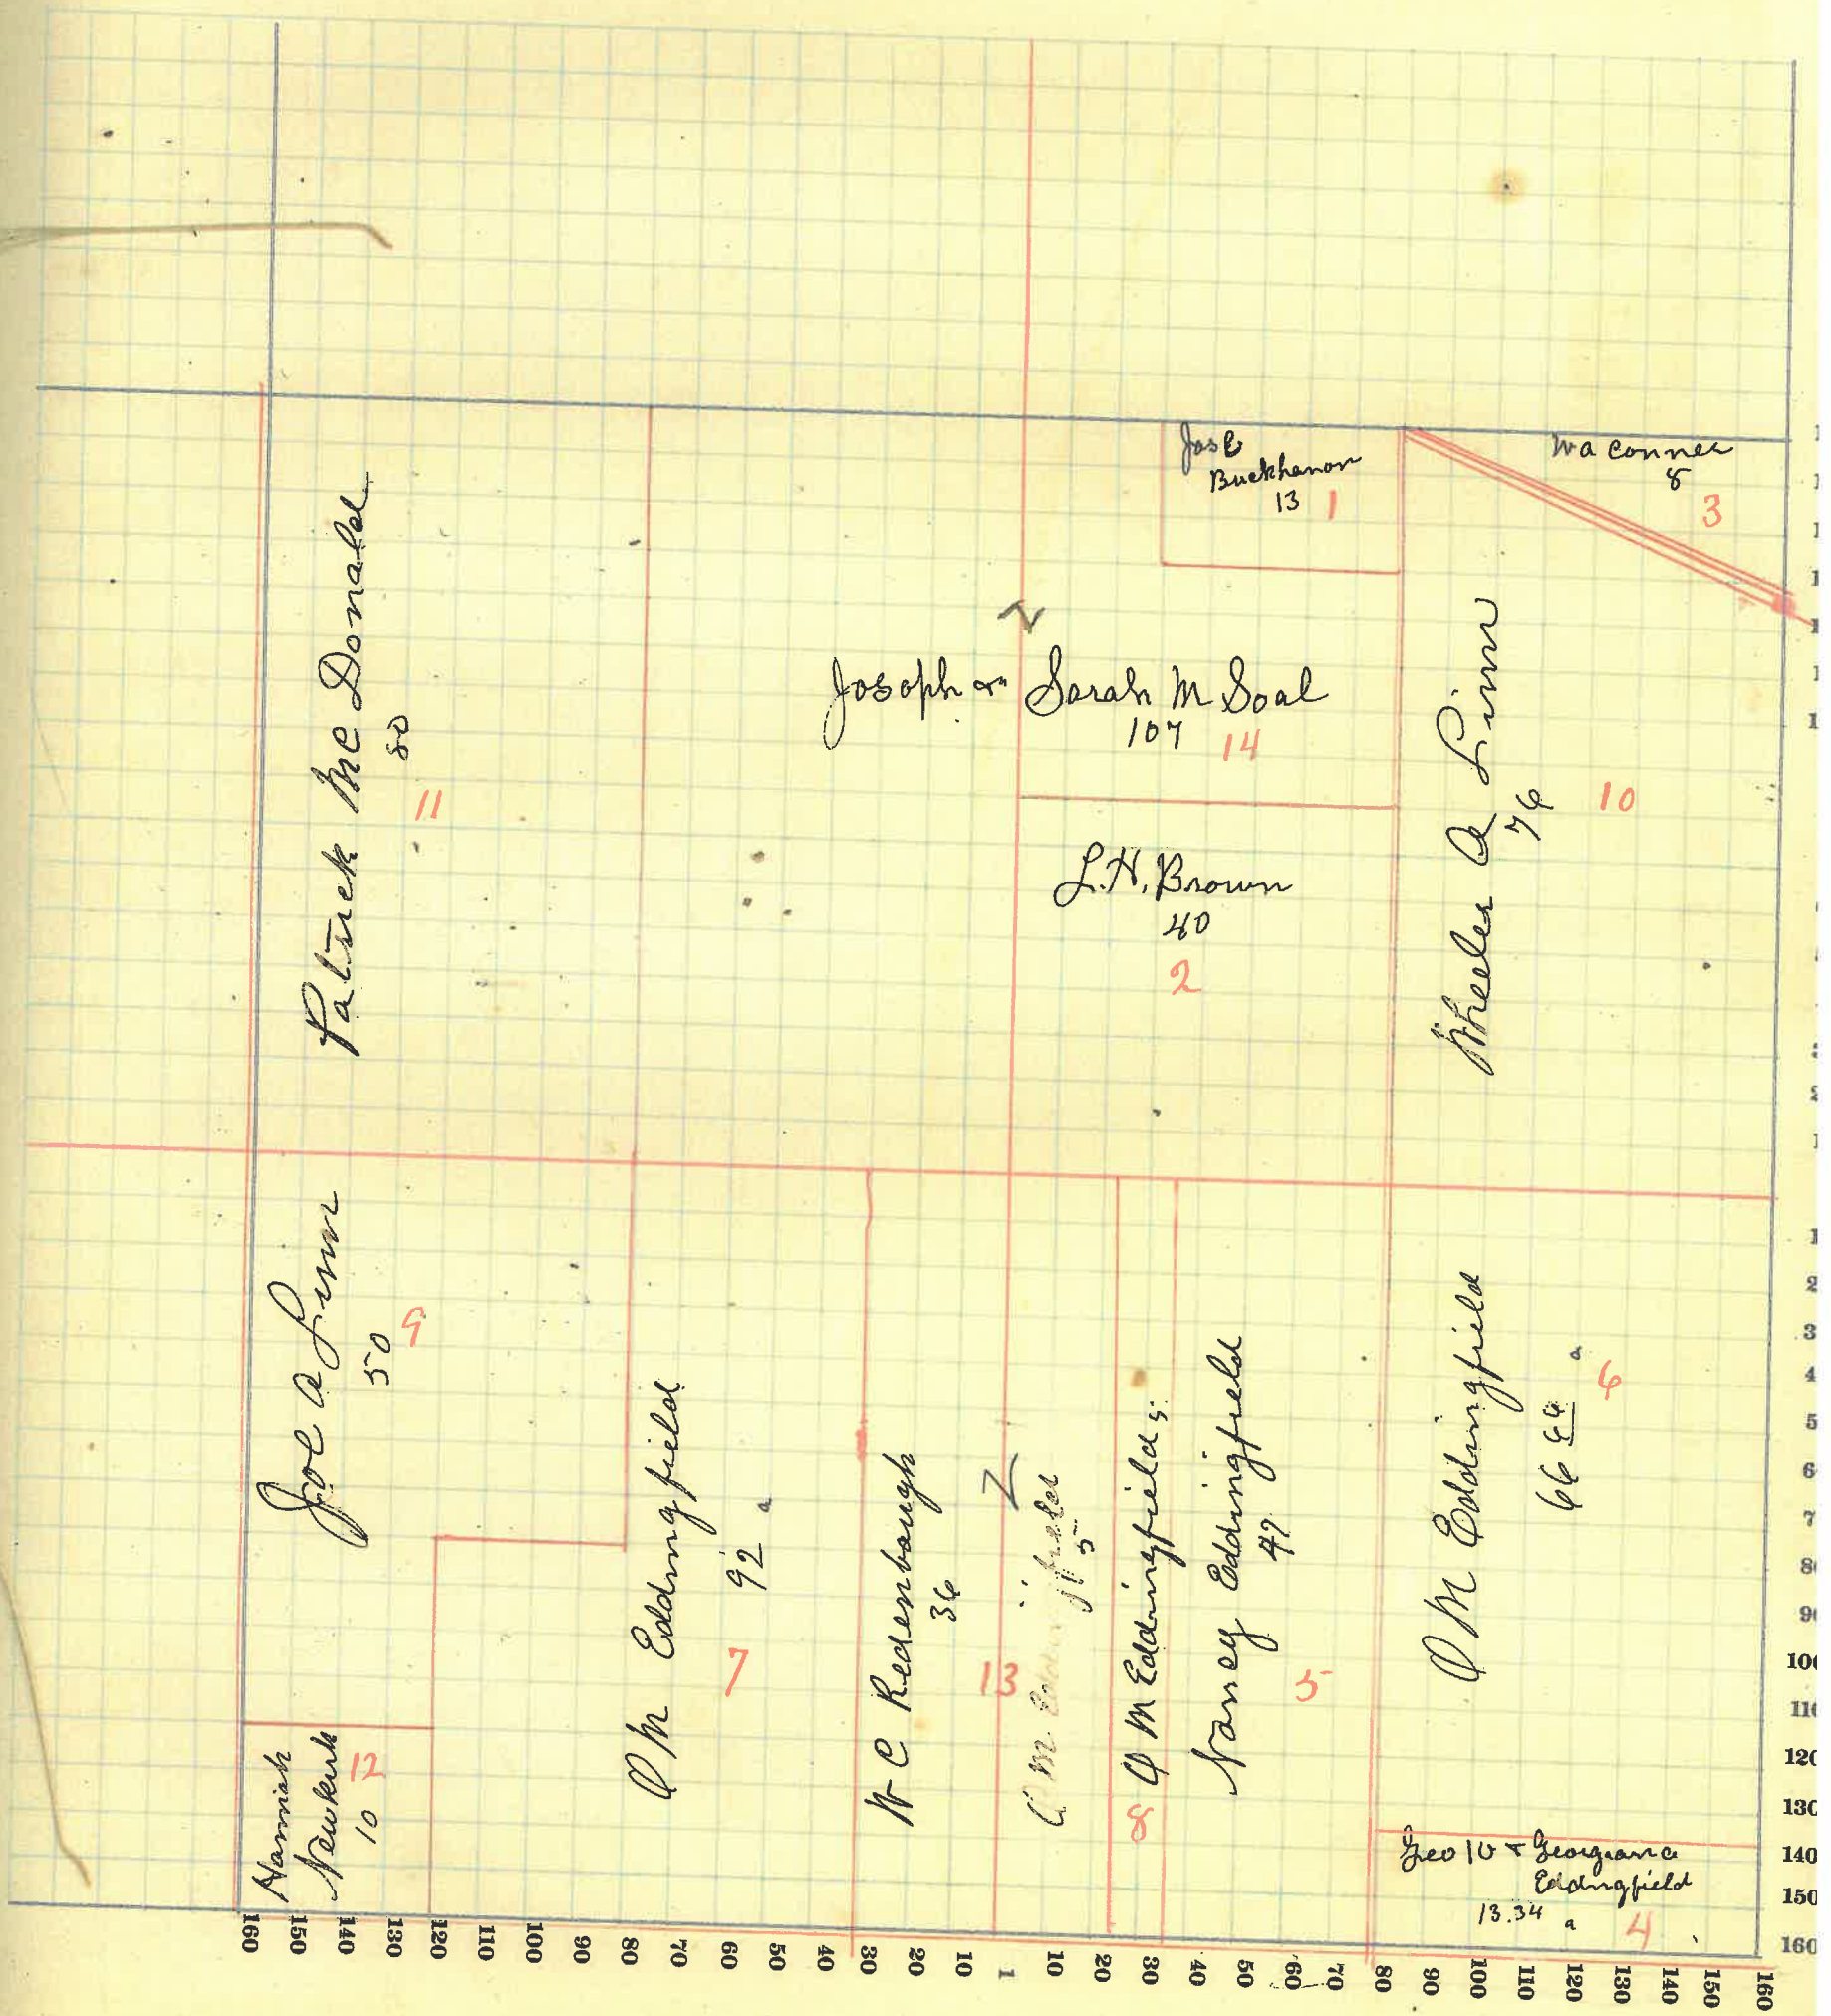 Jos E
Buckhanon
13 1
Wa Conner
8
3
Patrick Mc Donald
80
11
Joseph & Sarah M Soal
107 14
L.H. Brown
40
2
Wheeler A Linn
76
10
Joe A Linn
50
9
O M Eddingfield
92 a
7
W C Redenbaugh
36
13
5
O M Eddingfield 5
8
Nancy Eddingfield
47
5
O M Eddingfield
66 66 a
6
Hannah
Newkirk
10
12
Geo W & Georgiana
Eddingfield
13.34 a 4
1
2
3
4
5
6
7
8
90
100
110
120
130
140
150
160
160 150 140 130 120 110 100 90 80 70 60 50 40 30 20 10 1 10 20 30 40 50 60 70 80 90 100 110 120 130 140 150 160